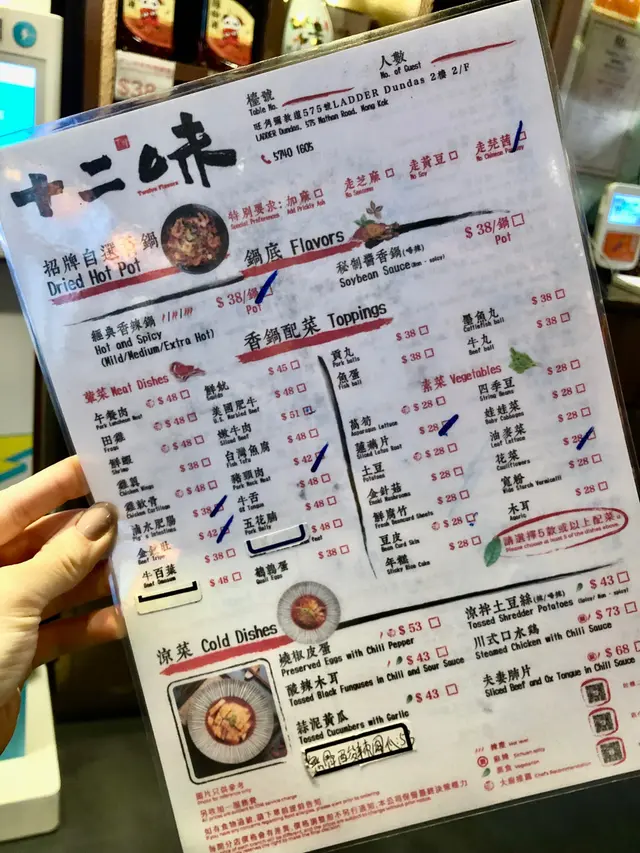 十二味
Twelve Flavors
檯號
Table No.
人數
No. of Guest
旺角彌敦道575號LADDER Dundas 2樓 2/F
LADDER Dundas, 575 Nathan Road, Mong Kok
5740 1605
特別要求: 加麻 走芝麻 走黃豆 走芫茜
Special Preferences Add Prickly Ash No Sesame No Soy
招牌自選香鍋
Dried Hot Pot
鍋底 Flavors
經典香辣鍋
Hot and Spicy
(Mild/Medium/Extra Hot)
$ 38/鍋
Pot
秘制醬香鍋(唔辣)
Soybean Sauce(Non - spicy)
$ 38/鍋
Pot
香鍋配菜 Toppings
葷菜 Meat Dishes
午餐肉 $ 48
Pork Luncheon Meat
田雞 $ 48
Frogs
鮮蝦 $ 48
Shrimp
雞翼 $ 38
Chicken Wings
雞軟骨 $ 48
Chicken Cartilage
滷水肥腸 $ 38
金錢肚 $ 42
牛百葉 $ 38
鮮魷 $ 45
Squids
美國肥牛 $ 51
U.S. Marbled Beef
嫩牛肉 $ 48
Sliced Beef
台灣魚腐 $ 42
Fish Tofu
豬頸肉 $ 48
Pork Neck Meat
牛舌 $ 48
OX Tongue
五花腩
Pork Belly
鵪鶉蛋
Quail Eggs
貢丸 $ 38
Pork balls
魚蛋 $ 38
Fish ball
墨魚丸 $ 38
Cuttlefish ball
牛丸 $ 38
Beef ball
素菜 Vegetables
萵筍 $ 28
Asparagus Lettuce
蓮藕片 $ 28
Sliced Lotus Root
土豆 $ 28
Potatoes
金針菇 $ 28
Enoki Mushrooms
鮮腐竹 $ 28
Fresh Beancurd Sheets
豆皮 $ 28
Bean Curd Skin
年糕 $ 28
Sticky Rice Cake
四季豆 $ 28
String Beans
娃娃菜 $ 28
Baby Cabbages
油麥菜 $ 28
Leaf Lettuce
花菜 $ 28
Cauliflowers
寬粉
Wide Starch Vermicelli
木耳
請選擇5款或以上配菜。
Please choose at least 5 of the dishes above.
涼菜 Cold Dishes
燒椒皮蛋 $ 53
Preserved Eggs with Chili Pepper
酸辣木耳 $ 43
Tossed Black Funguses in Chili and Sour Sauce
蒜泥黃瓜 $ 43
Tossed Cucumbers with Garlic
涼拌土豆絲(辣/唔辣) $ 43
Tossed Shredder Potatoes (Spicy/Non - spicy)
川式口水鷄 $ 73
Steamed Chicken with Chili Sauce
夫妻肺片 $ 68
Sliced Beef and Ox Tongue in Chili Sauce
圖片只供參考
Photo for reference only
另收加一服務費
如有食物過敏, 請下單前說明告知